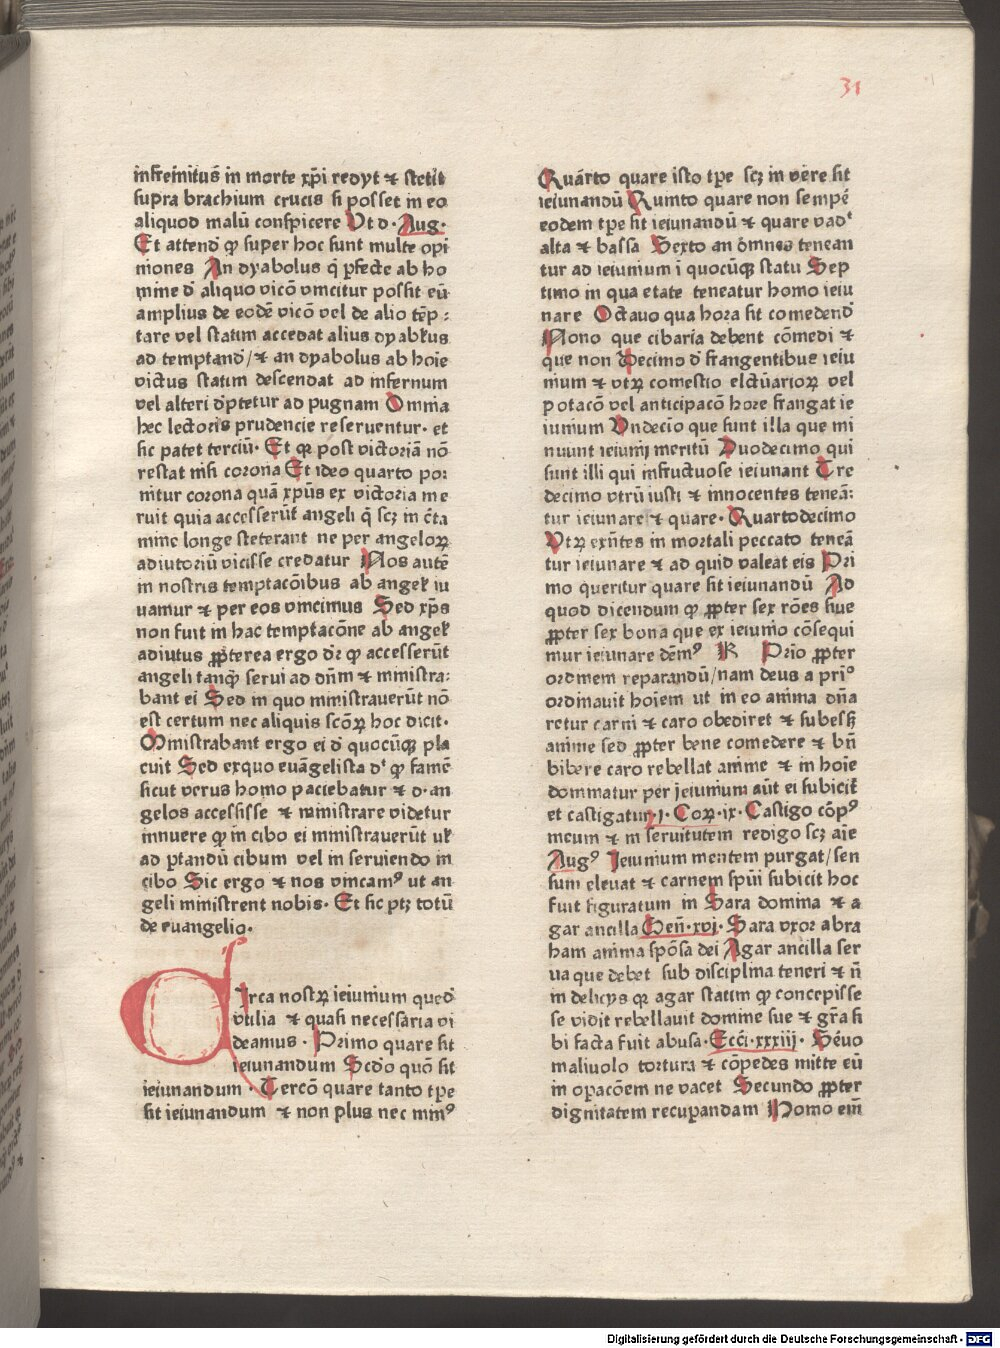 31
infremitus̄ in morte xp̄i redyt ⁊ stetit
supra brachium crucis si posset in eo
aliquod malū conspicere Vt d· Aug·
Et attend̄ ꝙ super hoc sunt multe opi
niones An dyabolus q̄ ꝑfecte ab ho
mine d̄ aliquo vicō vincitur possit eū
amplius de eodē vicō vel de alio tēp⸗
tare vel statim accedat alius dyabłus
ad temptand̄/ ⁊ an dyabolus ab hoīe
victus statim descendat ad infernum
vel alteri d̄ptetur ad pugnam Omnia
hec lectoris prudencie reseruentur· et
sic patet terciū· Et qꝛ post victoriā nō
restat nisi corona Et ideo quarto po⸗
nitur corona quā xp̄us ex victoria me
ruit quia accesserūt angeli q̄ scꝫ in c̄ta
mine longe steterant ne per angeloꝝ
adiutoriū vicisse credatur Nos autē
in nostris temptacōibus ab angeł iu
uamur ⁊ per eos vincimus Sed xp̄s
non fuit in hac temptacōne ab angeł
adiutus ꝓpterea ergo dr̄ ꝙ accesserūt
angeli tanꝙ̄ serui ad dn̄m ⁊ ministra⸗
bant ei Sed in quo ministrauerūt nō
est certum nec aliquis scōꝝ hoc dicit·
Ministrabant ergo ei d̄ quocūqꝫ pla
cuit Sed exquo euāgelista dᵗ ꝙ famē
sicut verus homo paciebatur ⁊ d· an
gelos accessisse ⁊ ministrare videtur
innuere ꝙ in cibo ei ministrauerūt uł
ad ꝑtandū cibum vel in seruiendo in
cibo Sic ergo ⁊ nos vincamꝰ ut an
geli ministrent nobis· Et sic ptꝫ totū
de euangelio·
Circa nostꝝ ieiunium qued̄
vtilia ⁊ quasi necessaria vi
deamus· Primo quare sit
ieiunandum Scd̄o quō sit
ieiunandum · Tercō quare tanto tp̄e
sit ieiunandum ⁊ non plus nec minꝰ
Quārto quare isto tp̄e scꝫ in vere sit
ieiunandū Quinto quare non sempē
eodem tp̄e sit ieiunandū ⁊ quare vadᵗ
alta ⁊ bassa Sexto an om̄nes tenean
tur ad ieiunium ī quocūqꝫ statu Sep
timo in qua etate teneatur homo ieiu
nare Octauo qua hora sit comedend̄
Nono que cibaria debent cōmedi ⁊
que non Decimo d̄ frangentibus ieiu
nium ⁊ vtꝝ comestio elctūarioꝝ vel
potacō vel anticipacō hore frangat ie
iunium Vndecīo que sunt illa que mi
nuunt ieiunij meritū Duodecimo qui
sunt illi qui infructuose ieiunant Tre
decimo vtrū iusti ⁊ innocentes teneā⸗
tur ieiunare ⁊ quare· Quartodecimo
Vtꝝ exn̄tes in mortali peccato teneā
tur ieiunare ⁊ ad quid valeat eis Pri
mo queritur quare sit ieiunandū Ad
quod dicendum ꝙ ꝓpter sex rōes siue
ꝓpter sex bona que ex ieiunio cōsequi
mur ieiunare dēmꝰ R Prīo ꝓpter
ordinem reparandū/nam deus a priᵒ
ordinauit hoīem ut in eo anima dn̄a
retur carni ⁊ caro obediret ⁊ subesset
anime sed ꝓpter bene comedere ⁊ bn̄
bibere caro rebellat anime ⁊ in hoīe
dominatur per ieiunium aūt ei subicit
et castigatur ·j· Coꝝ·ix· Castigo cōpꝰ
meum ⁊ in seruitutem redigo scꝫ aīe
Augꝰ Ieiunium mentem purgat/sen
sum eleuat ⁊ carnem spūi subicit hoc
fuit figuratum in Sara domina ⁊ a
gar ancilla Gen̄·xvj· Sara vxor abra
ham anima spōsa dei Agar ancilla ser
ua que debet sub disciplina teneri ⁊ n̄
in delicijs qꝛ agar statim ꝙ concepisse
se vidit rebellauit domine sue ⁊ gr̄a si
bi facta fuit abusa· Eccī·xxxiij· Sēuo
maliuolo tortura ⁊ cōpedes mitte eū
in opacōem ne vacet Secundo ꝓpter
dignitatem recuperandam Homo eīn
Digitalisierung gefördert durch die Deutsche Forschungsgemeinschaft - DFG